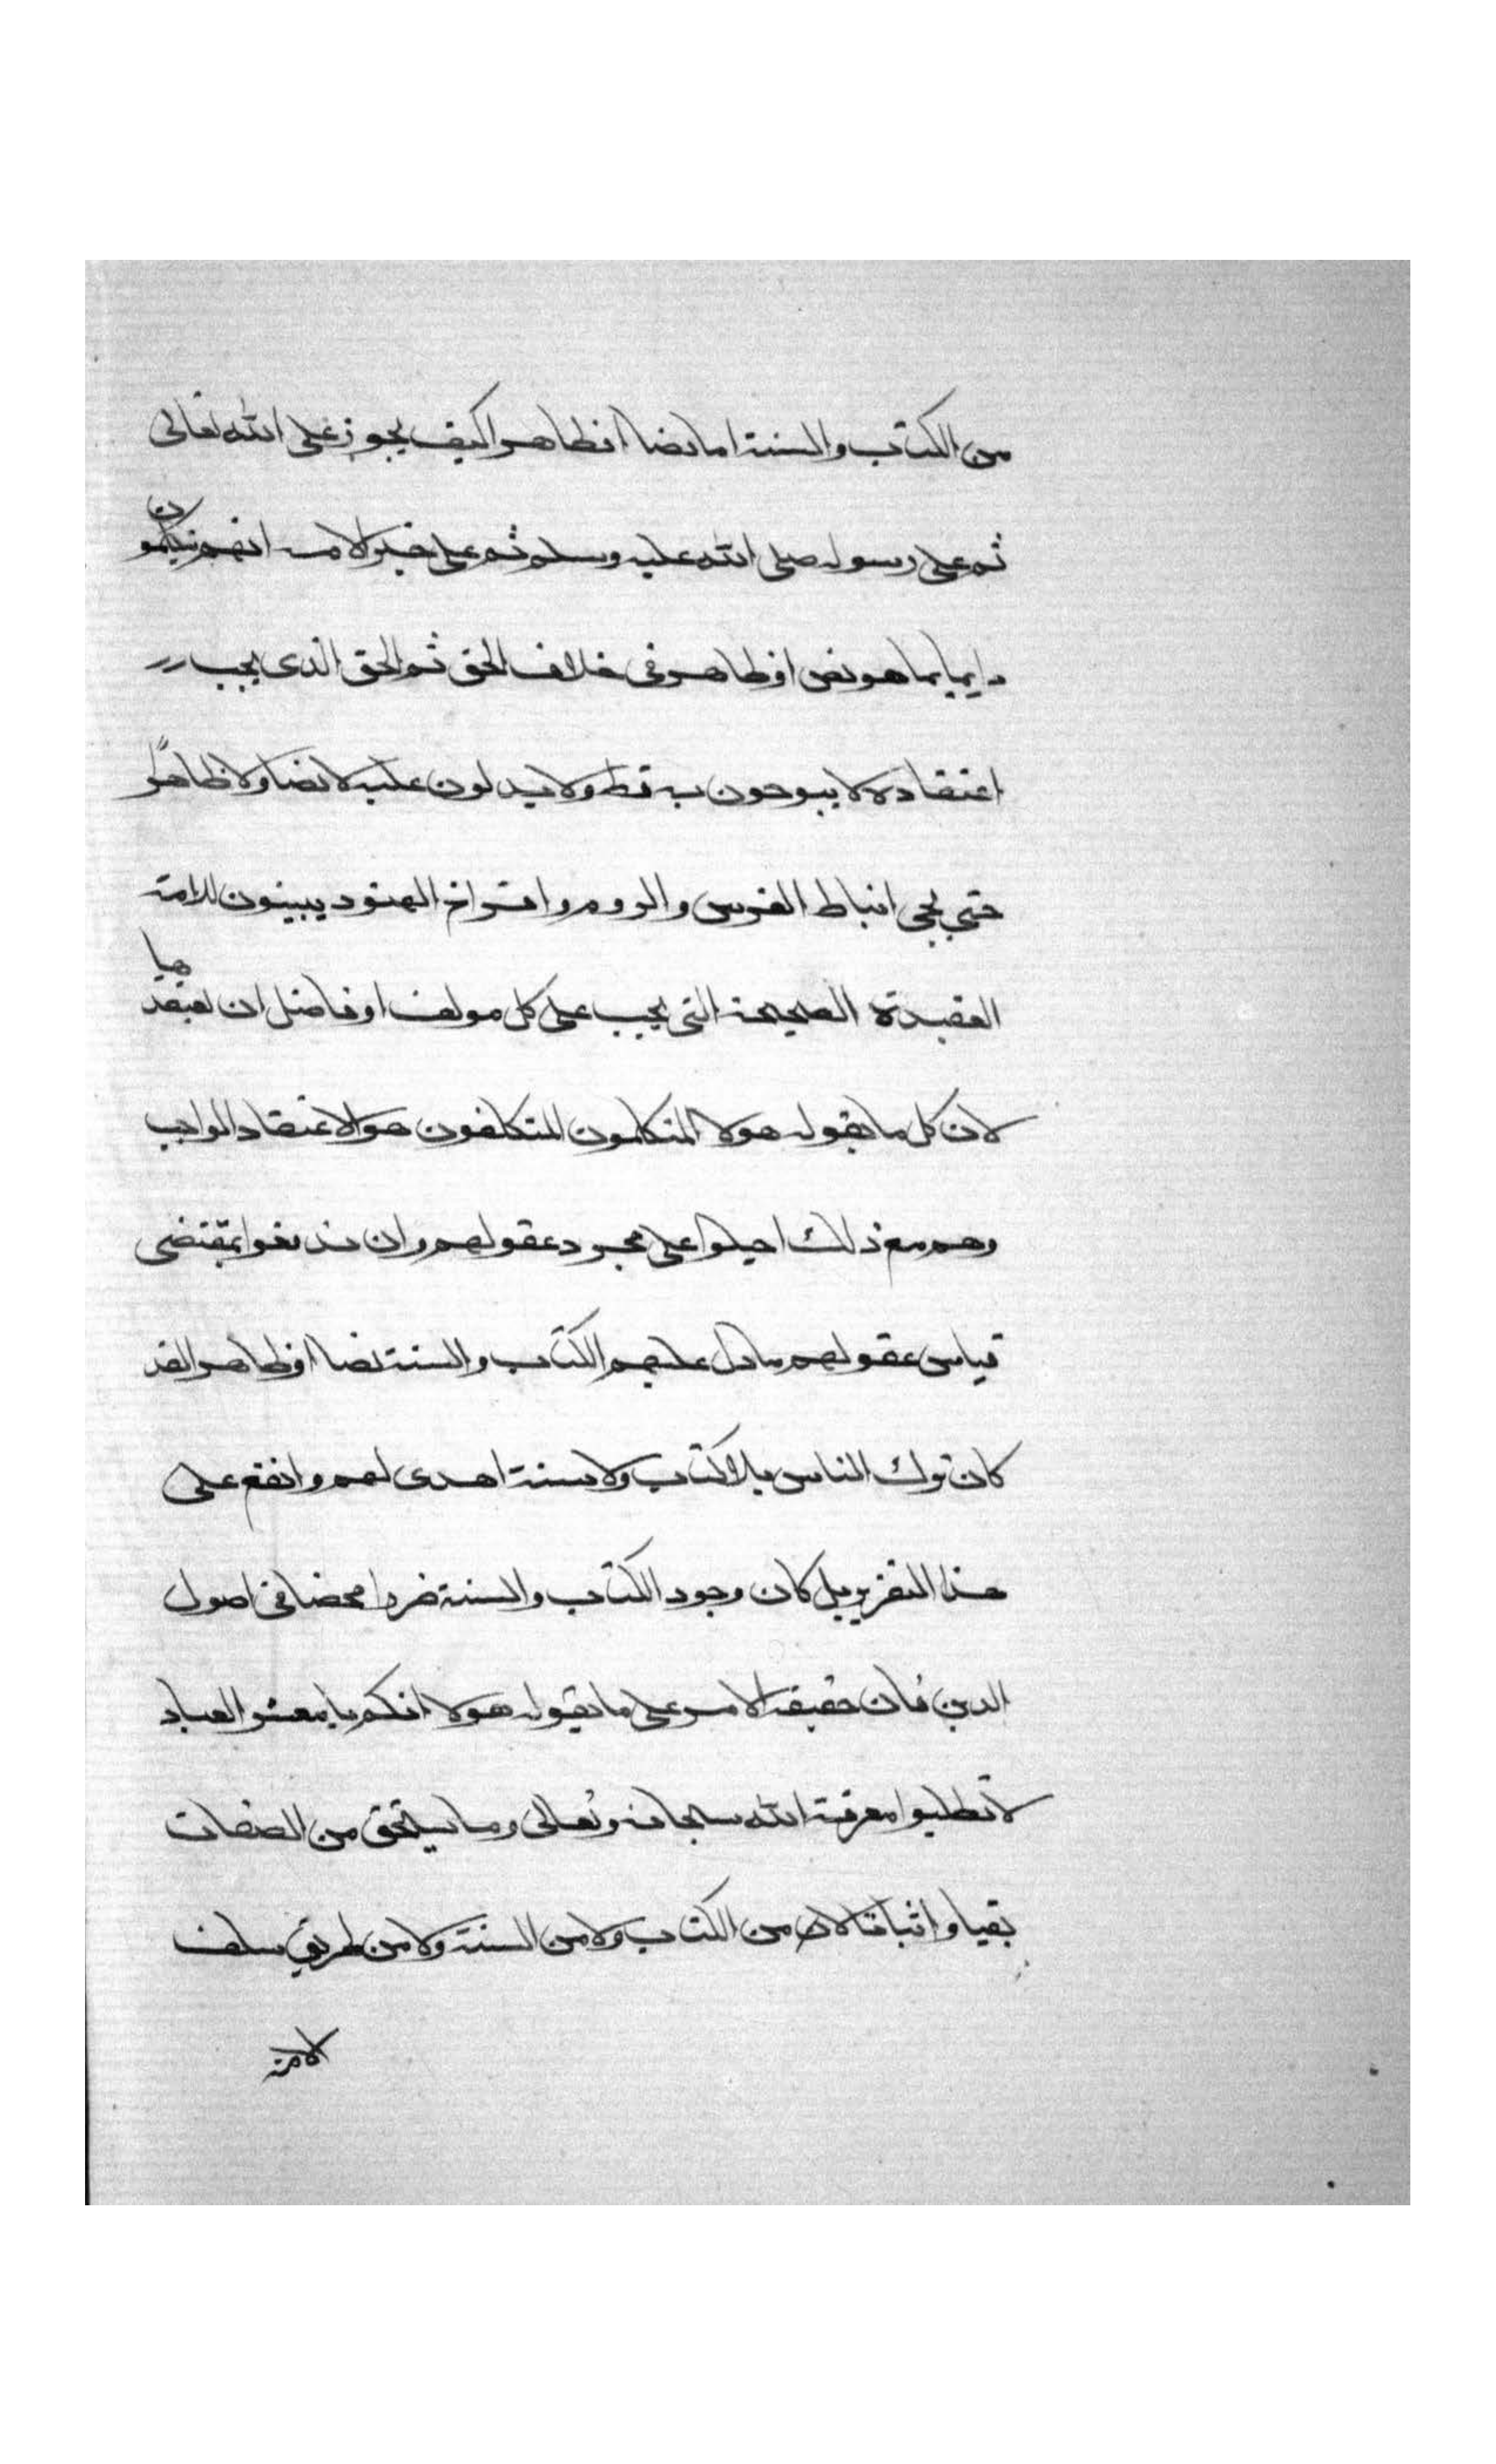 من الكتاب والسنة اما نصا اوظاهرا كيف يجوز على الله تعالى
ثم على رسوله صلى الله عليه وسلم ثم على خير الامه انهم يتكلمون
دايما بما هو نص اوظاهر في خلاف الحق ثم الحق الذي يجب
اعتقاده لا يبوحون به قط ولا يدلون عليه لا نصا ولا ظاهرًا
حتى يجي انباط الفرس والروم وافراخ الهنود يبينون للامة
العقيدة الصحيحة التي يجب على كل مولف او فاضل ان يعتقدها
لان كل ما يقوله هولا المتكلمون المتكلفون هو الاعتقاد الواجب
وهم مع ذلك احيلوا على مجرد عقولهم وان يدفعوا بمقتضى
قياس عقولهم ما دل عليهم الكتاب والسنة نصا اوظاهرا لقد
كان ترك الناس بلا كتاب ولا سنة اهدى لهم وانفع على
هذا التقرير بل كان وجود الكتاب والسنة ضررا محضا في اصول
الدين فان حقيقة الامر على ما يقوله هولا انكم يا معشر العباد
لا تطلبوا معرفة الله سبحانه وتعالى وما يستحق من الصفات
نفيا واثباتا لا من الكتاب ولا من السنة ولا من طريق سلف
الامة